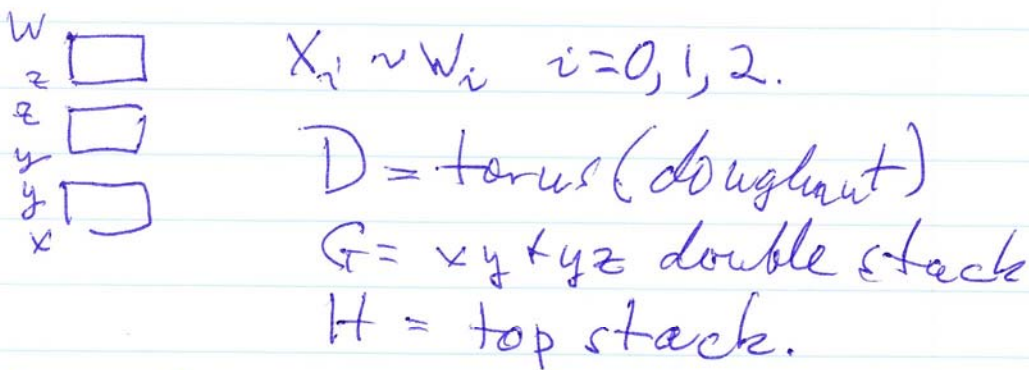 W
z
z
y
y
x
X_i ~ W_i i=0,1,2.
D = torus (doughnut)
G = xy + yz double stack
H = top stack.